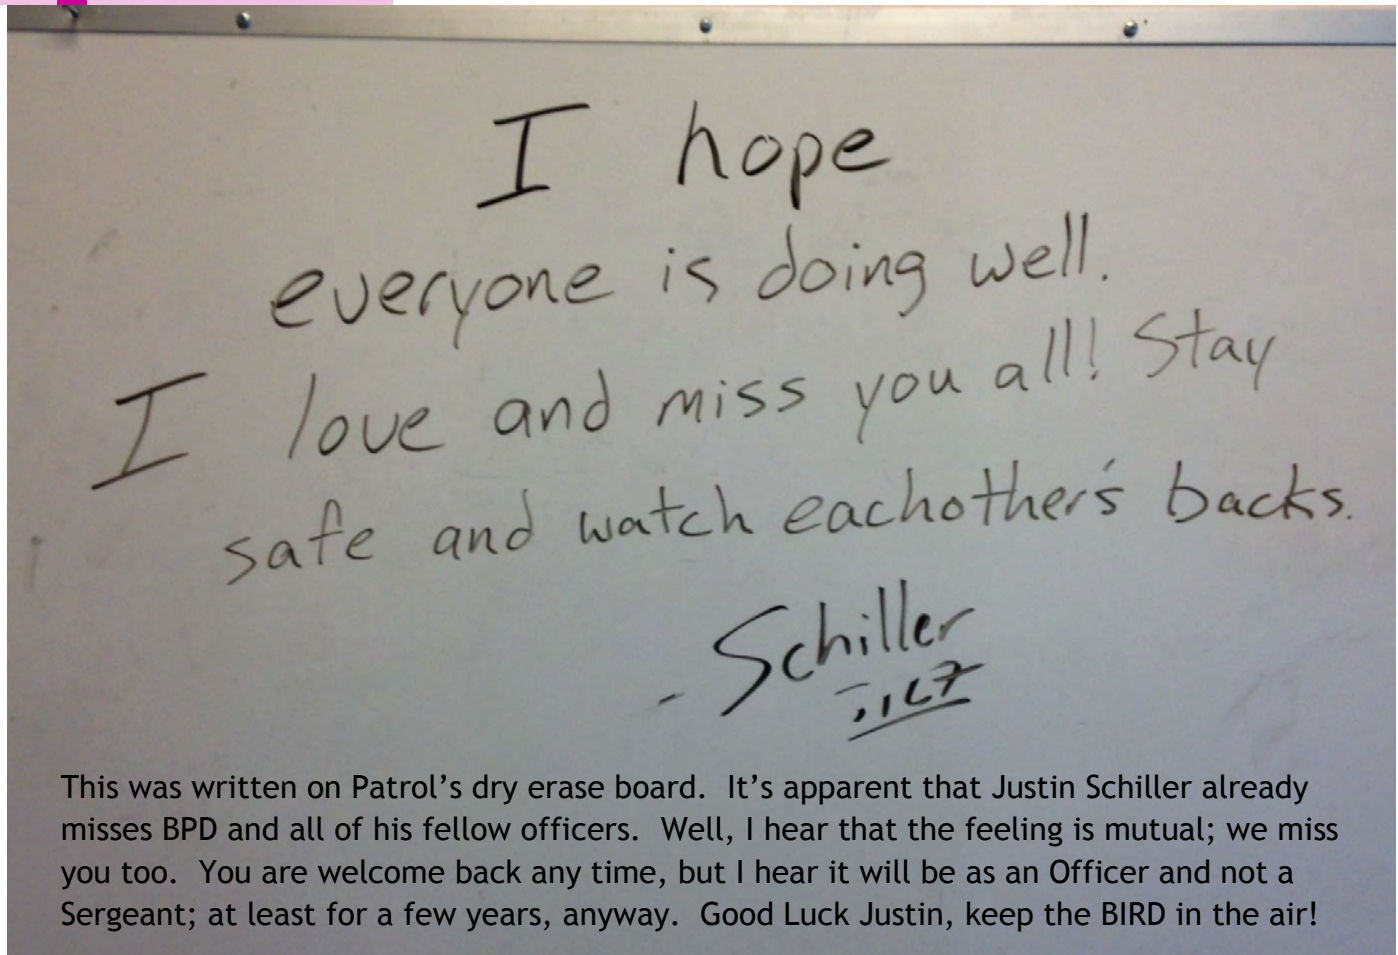 I hope
everyone is doing well.
I love and miss you all! Stay
safe and watch eachother's backs.
- Schiller
This was written on Patrol's dry erase board.  It's apparent that Justin Schiller already
misses BPD and all of his fellow officers.  Well, I hear that the feeling is mutual; we miss
you too.  You are welcome back any time, but I hear it will be as an Officer and not a
Sergeant; at least for a few years, anyway.  Good Luck Justin, keep the BIRD in the air!